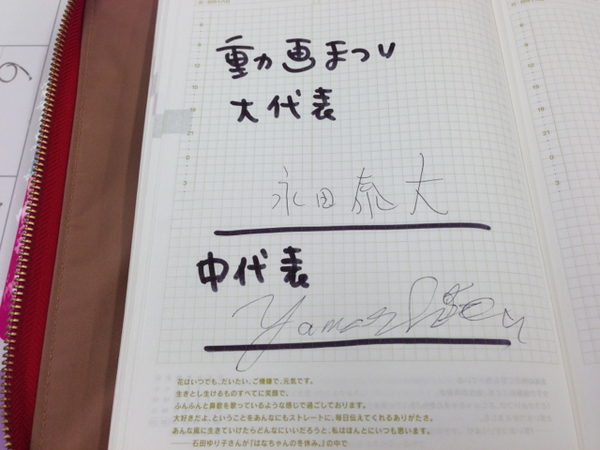 動画まつり
大代表
永田泰大
中代表
6
9
12
15
18
21
0
3
花はいつでも、だいたい、ご機嫌で、元気です。
生きとし生けるものすべてに笑顔で、
ふんふんと鼻歌を歌っているような感じで過ごしております。
大好きだよ、ということをあんなにもストレートに、毎日伝えてくれるありがたさ。
あんな風に生きていけたらどんなにいいだろうと、私はほんとにいつも思います。
――石田ゆり子さんが『はなちゃんの冬休み。』の中で